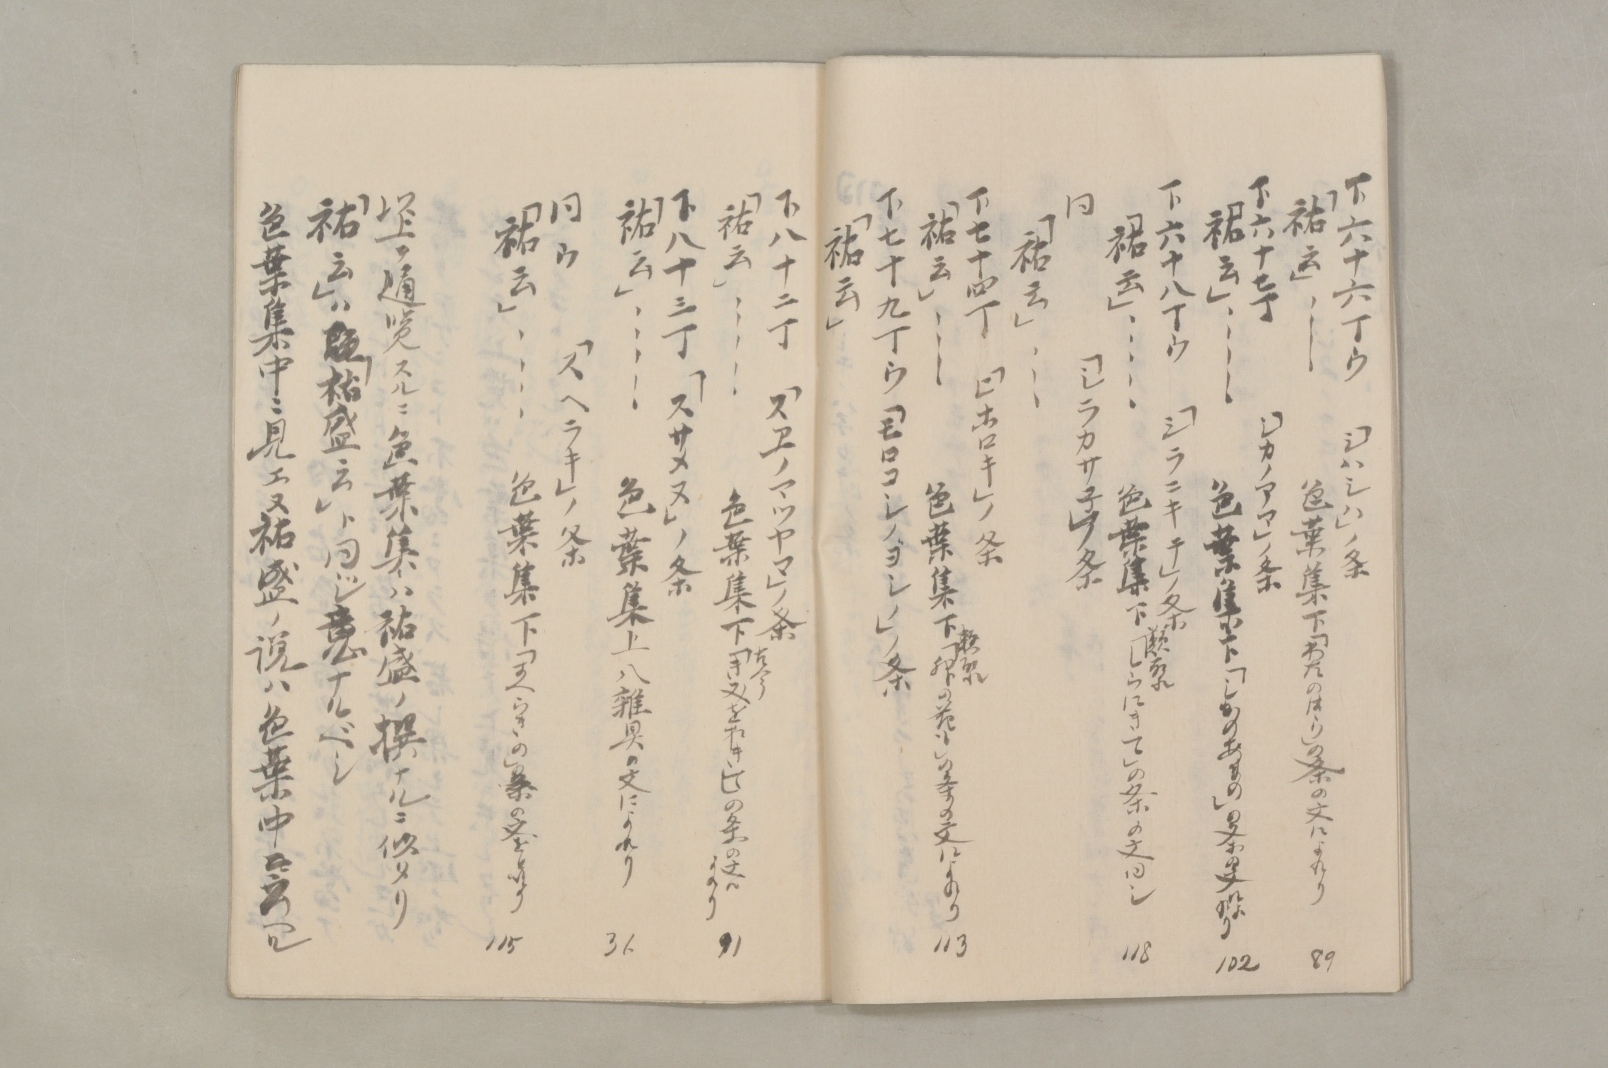 下六十六丁ウ 「シハシハ」ノ条
「祐云」、、―― 色葉集下「わたのはら」の条の文によれり 89
下六十七丁 「シカノアマ」ノ条
「祐云」、、―― 色葉集下「しかのあまの」の条の文 102
下六十八丁ウ 「シラニキテ」ノ条
「祐云」、、、、 色葉集下「しらにきて」の条の文同シ 118
同 「シラカサ子」ノ条
「祐云」、、――
下七十四丁 「ヒホロキ」ノ条
「祐云」、、―― 色葉集下 の条の文によれり 113
下七十九丁ウ 「モロコシノヨシノ」ノ条
「祐云」
下八十二丁 「スヱノマツヤマ」ノ条
「祐云」、、、、 色葉集下 の条の文によれり 91
下八十三丁 「スサメヌ」ノ条
「祐云」、、、、 色葉集上八雑具の文によれり 31
同ウ 「スヘラキ」ノ条
「祐云」、、、、 色葉集下「すへらきの」の条の文 115
以上ヲ通覧スルニ色葉集ハ祐盛ノ撰ナルニ似タリ
「祐云」ハ「祐盛云」ト同ジ意ナルベシ
色葉集中ニ見エヌ祐盛ノ説ハ色葉中